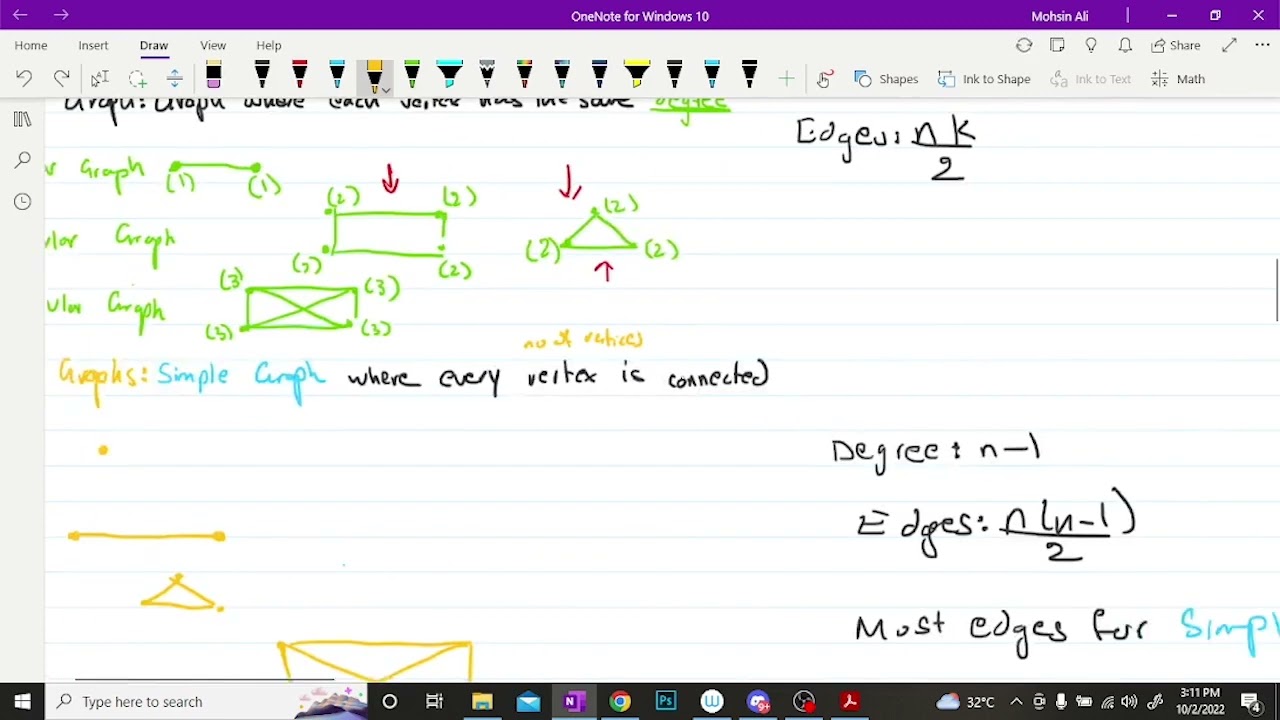 OneNote for Windows 10
Mohsin Ali
Home Insert Draw View Help
Share
Shapes Ink to Shape Ink to Text Math
Graph: Graph where each vertex has the same degree
Edges: nk/2
r Graph (1) (1)
(2) (2) (2)
ular Graph (2) (2)
(2) (2)
(3) (3)
ular Graph (3) (3)
no of vertices
Graphs: Simple Graph where every vertex is connected
Degree: n-1
Edges: n(n-1)/2
Most edges for Simpl
Type here to search
32°C
3:11 PM
10/2/2022
4